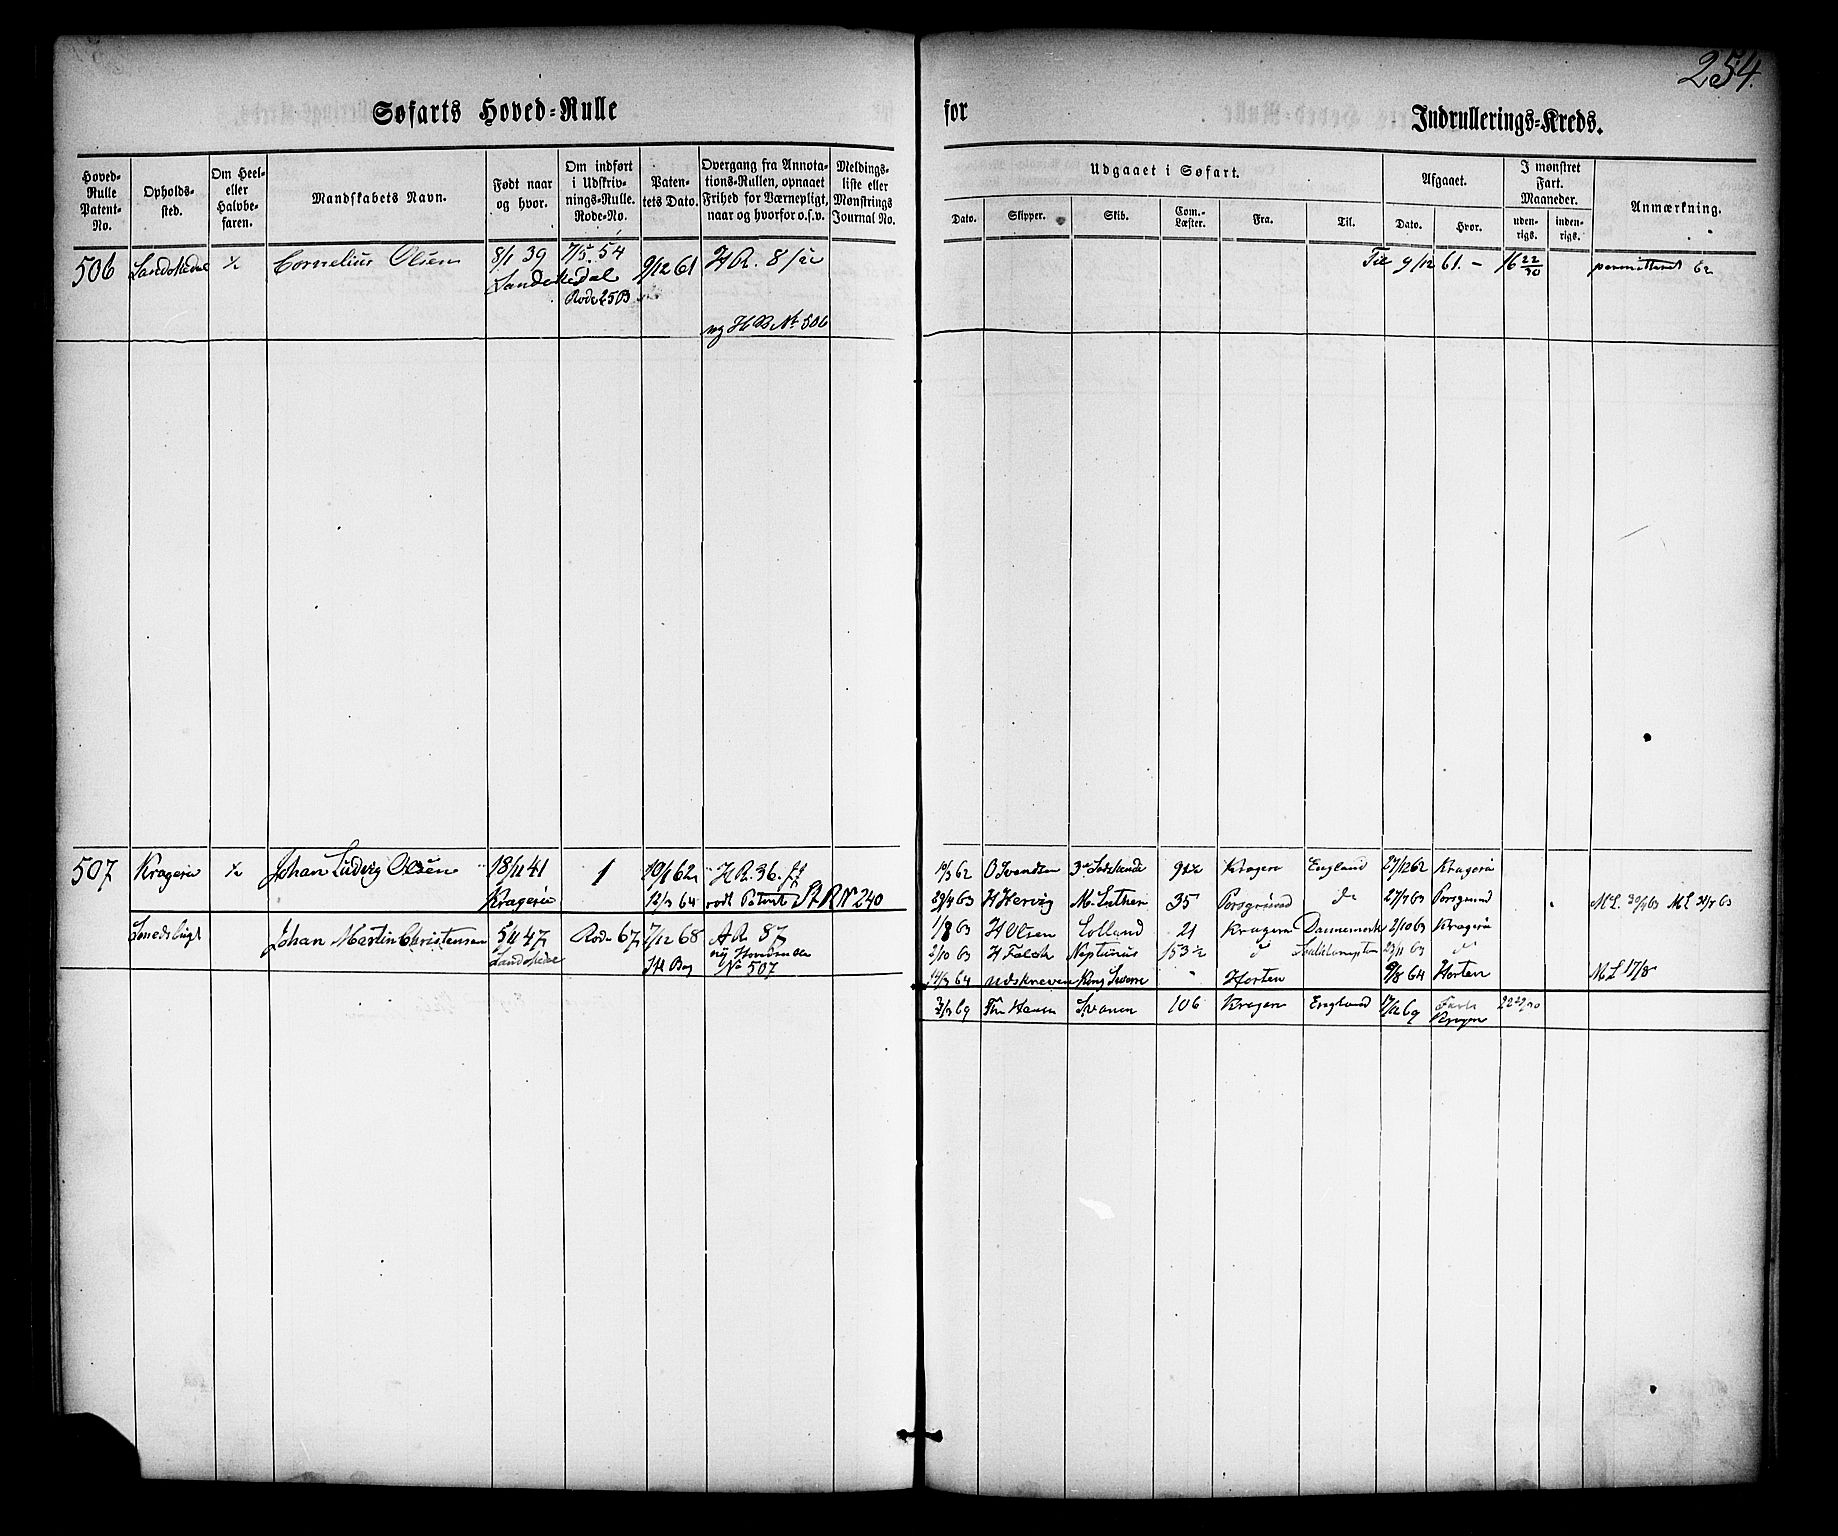 254.
Søfarts Hoved-Rulle for Indrullerings-Kreds.
Hoved-Rulle Patent-No. Opholds-sted. Om Heel- eller Halvbe-faren. Mandskabets Navn. Født naar og hvor. Om indført i Udskriv-nings-Rulle. Rode-No. Paten-tets Dato. Overgang fra Annota-tions-Rullen, opnaaet Frihed for Værnepligt, naar og hvorfor o.s.v. Meldings-liste eller Mønstrings Journal No.
Udgaaet i Søfart. Afgaaet. I mønstret Fart. Maaneder. Anmærkning.
Dato. Skipper. Skib. Com.-Læster. Fra. Til. Dato. Hvor. uden-rigs. inden-rigs.
506 ½ Cornelius Olsen 8/1 39 7/5. 54 9/12 61 H R. 8 Til 9/12 61. - 16 22/30 62
Rode 25 B
ny H R Nr 506
507 Kragerø ½ Johan Ludvig Olsen 18/11 41 1 10/1 62 H R. 36.
Kragerø 12/3 64 rødt Patent St R Nr 240
10/3 62 O Svendsen 3de Sødskende 91½ Kragerø England 27/12 62 Kragerø
29/4 63 H Hervig M. Luther 35 Porsgrund do 27/7 63 Porsgrund M L. 30/4 63 M L 31/7 63
1/8 63 H Olsen Lolland 21 Kragerø Dannemark 2/10 63 Kragerø
2/10 63 H Falck Neptunus 153½ d 23/11 63 d
14/3 64 udskreven Kong Sverre " Horten 9/8 64 Horten M L 17/8
Johan Martin Christensen 5/11 47 Rode 67 7/12 68 A R 87
ny Hovedrulle
No 507
3/3 69 Svanen 106 Kragerø England 17/12 69 22 29/30